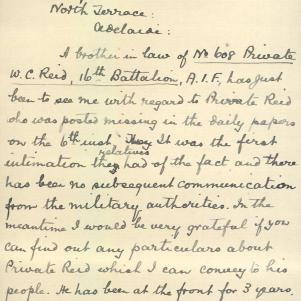 North Terrace:
Adelaide:
A brother in law of No 608 Private
W.C. Reid, 16th Battalion, A.I.F. has just
been to see me with regard to Private Reid
who was posted missing in the daily papers
on the 6th inst. They It was the first
relatives
intimation they had of the fact and there
has been no subsequent communication
from the military authorities. In the
meantime I would be very grateful if you
can find out any particulars about
Private Reid which I can convey to his
people. He has been at the front for 3 years,